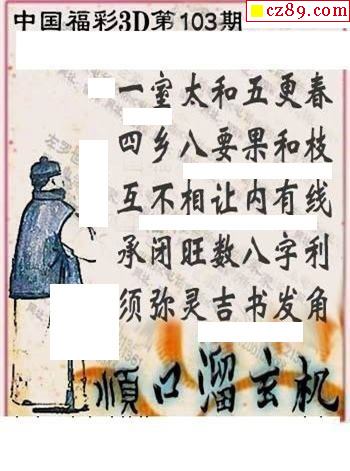 cz89.com
中国福彩3D第103期
一室太和五更春
四乡八要果和枝
互不相让内有线
承闭旺数八字利
须弥灵吉书发角
顺口溜玄机